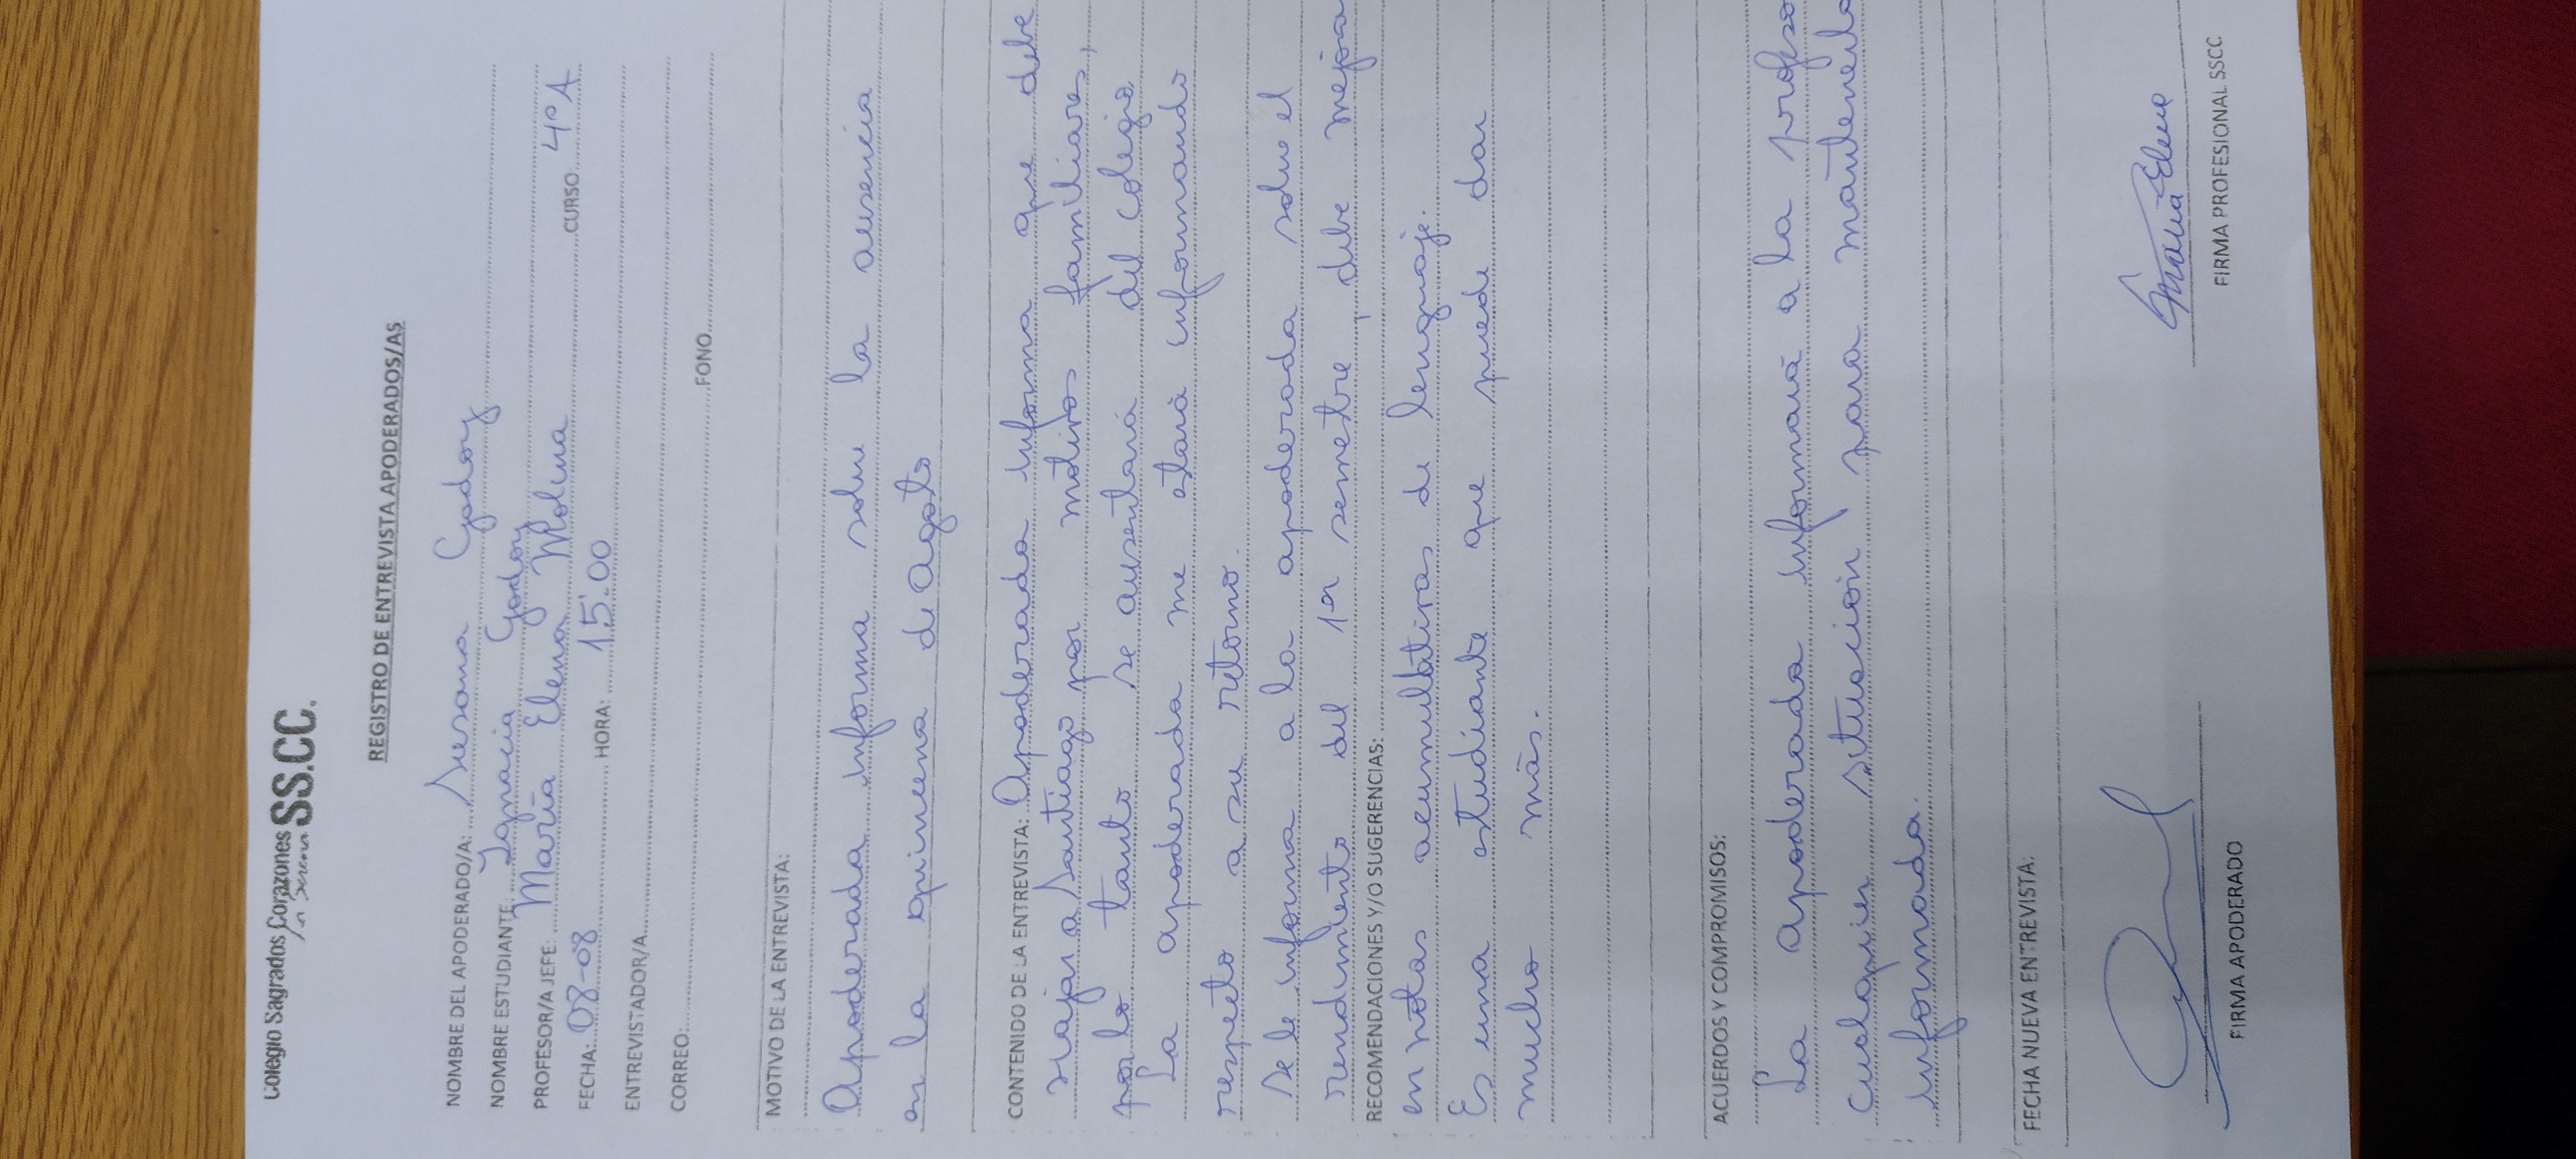 Colegio Sagrados Corazones SS.CC.
La Serena
REGISTRO DE ENTREVISTA APODERADOS/AS
NOMBRE DEL APODERADO/A: Susana Godoy
NOMBRE ESTUDIANTE: Ignacia Godoy
PROFESOR/A JEFE: María Elena Molina CURSO: 4º A
FECHA: 08-08 HORA: 15:00
ENTREVISTADOR/A
CORREO: FONO
MOTIVO DE LA ENTREVISTA:
Apoderada informa sobre la ausencia
en la quincena de Agosto
CONTENIDO DE LA ENTREVISTA: Apoderada informa que debe
viajar a Santiago por motivos familiares,
por lo tanto se ausentará del colegio
La apoderada me estará informando
respecto a su retorno.
Se le informa a la apoderada sobre el
rendimiento del 1er semestre, debe mejora
RECOMENDACIONES Y/O SUGERENCIAS:
en notas acumulativas de lenguaje.
Es una estudiante que puede dar
mucho más.
ACUERDOS Y COMPROMISOS:
La apoderada informará a la profeso
cualquier situación para mantenerla
informada.
FECHA NUEVA ENTREVISTA:
FIRMA APODERADO
María Elena
FIRMA PROFESIONAL SSCC